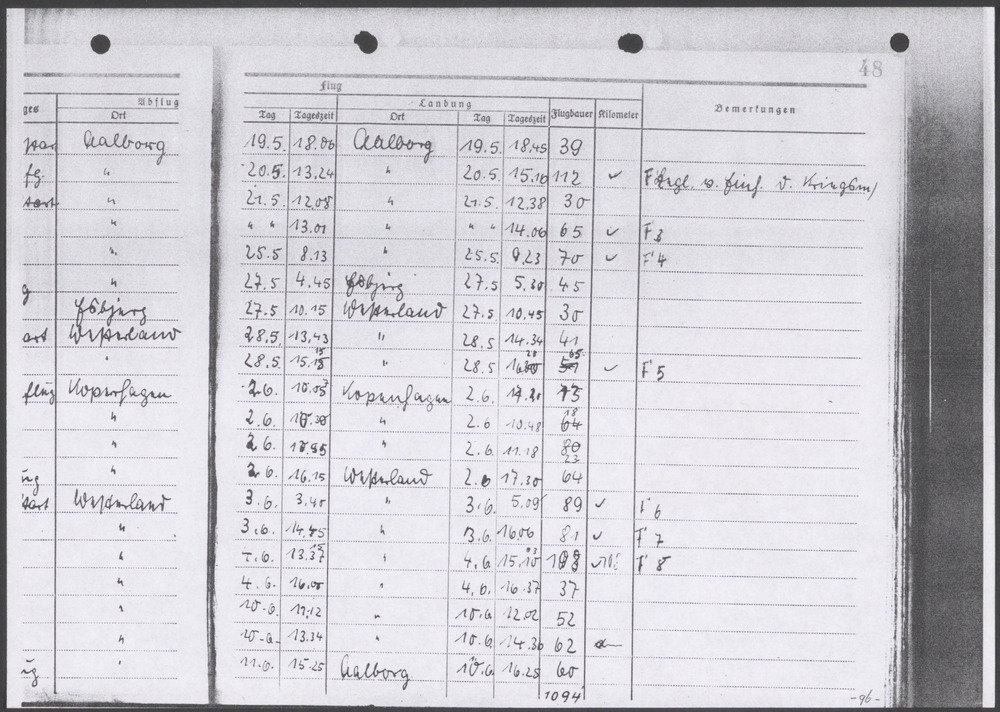 48
Flug
ges Abflug Landung Flugdauer Kilometer Bemerkungen
Ort Tag Tageszeit Ort Tag Tageszeit
Aalborg 19.5. 18.06 Aalborg 19.5. 18.45 39
fg. " 20.5. 13.24 " 20.5. 15.16 112 ✓
" 21.5. 12.08 " 21.5. 12.38 30
" " " 13.01 " " " 14.06 65 ✓ F 3
" 25.5 8.13 " 25.5. 9.23 70 ✓ F 4
" 27.5 4.45 Esbjerg 27.5 5.30 45
Esbjerg 27.5 10.15 Westerland 27.5 10.45 30
art Westerland 28.5. 13.43 " 28.5 14.34 41
" 28.5. 15.15 " 28.5 65 ✓ F 5
flug Kopenhagen 2.6. Kopenhagen 2.6.
" 2.6. " 2.6 10.48 18
" 2.6. " 2.6. 11.18 23
ug " 2.6. 16.15 Westerland 2.6 17.30 64
tart Westerland 3.6. 3.40 " 3.6. 5.09 89 ✓ F 6
" 3.6. 14.45 " 3.6. 16.06 81 ✓ F 7
" 13.37 " 4.6. 15.10 ✓ F 8
" 4.6. 16.00 " 4.6. 16.37 37
" 10.6. 11.12 " 10.6 12.02 52
" 10.6. 13.34 " 10.6. 14.36 62
ug " 11.6. 15.25 Aalborg 16.25 60
1094
-96-